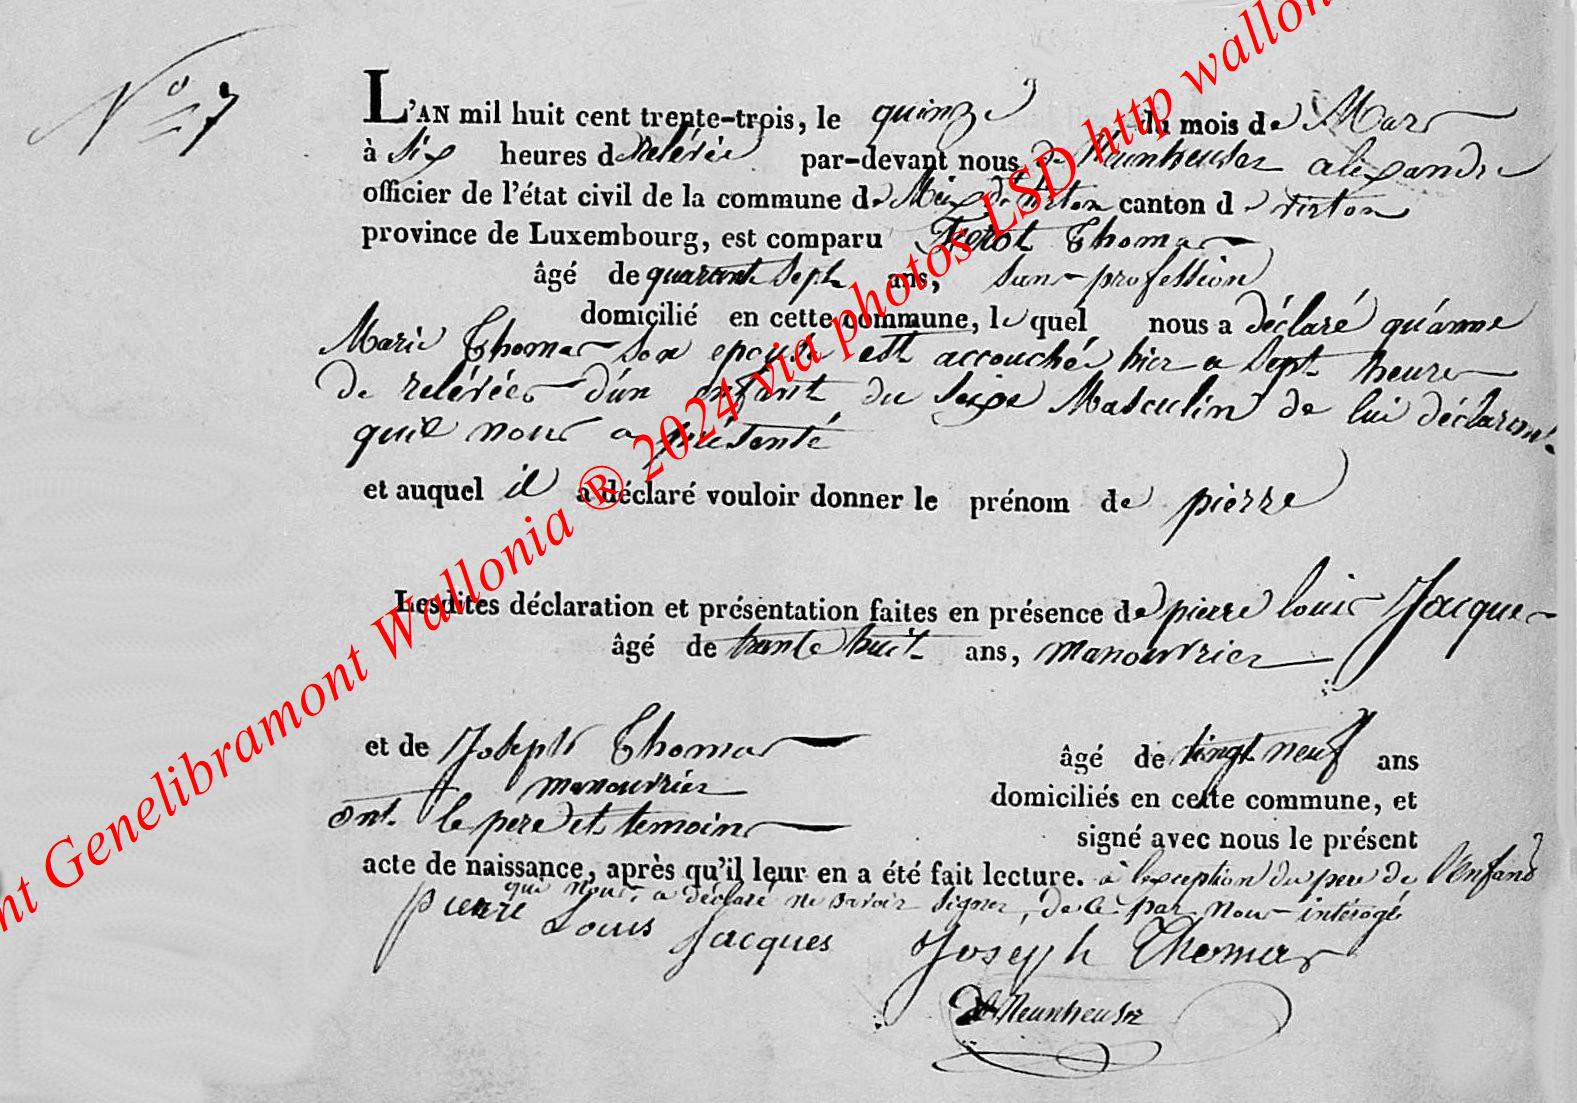 N° 7
L'AN mil huit cent trente-trois, le quinze du mois de Mars
à Six heures de relévée par-devant nous de Neunheuser alexandre
officier de l'état civil de la commune de Meix dt virton canton de virton
province de Luxembourg, est comparu Thomas
âgé de quarante Sept ans, Sans profession
domicilié en cette commune, le quel nous a déclaré qu'anne
Marie Thomas son epouse est accouchée hier a Sept heures
de relévées d'un enfant du Sexe Masculin de lui déclarant
quil nous a présenté
et auquel il a déclaré vouloir donner le prénom de pierre
Lesdites déclaration et présentation faites en présence de pierre louis Jacques
âgé de trente huit ans, manouvrier
et de Joseph Thomas âgé de vingt neuf ans
manouvrier domiciliés en cette commune, et
ont le pere et temoins signé avec nous le présent
acte de naissance, après qu'il leur en a été fait lecture. à l'exception du pere de l'enfant
qui nous a déclaré ne savoir signer, de ce par nous intérogé
pierre Louis Jacques Joseph Thomas
de Neunheuser
Genelibramont Wallonia ® 2024 via photos LSD http wallon